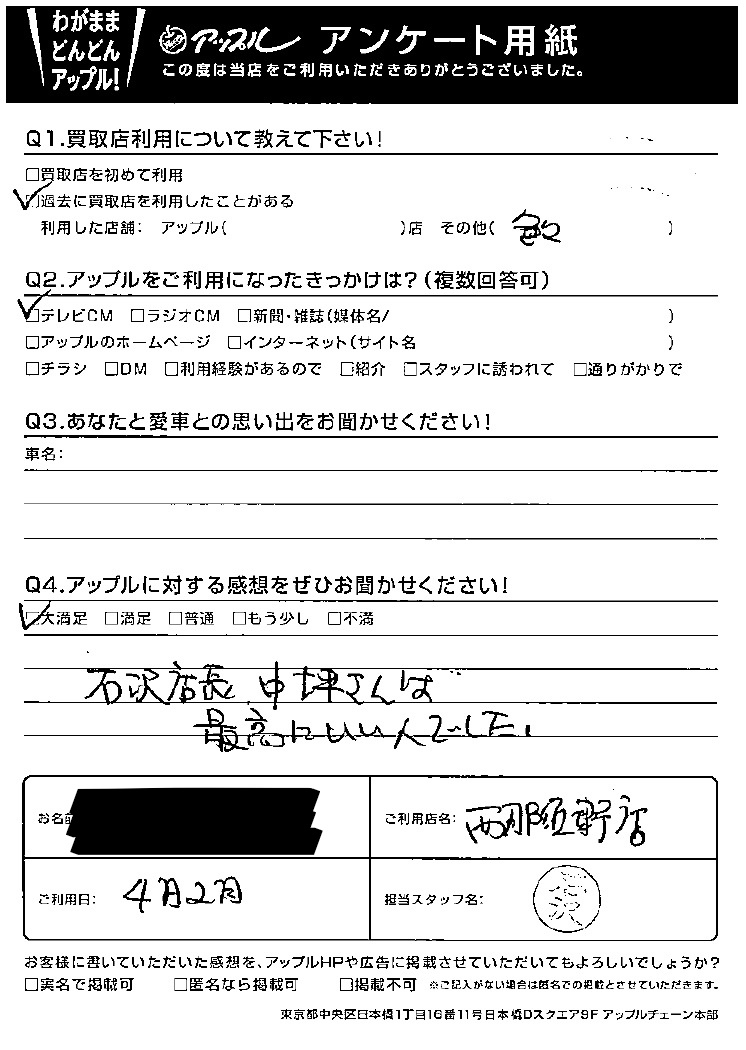 わがまま
どんどん
アップル!
アップル アンケート用紙
この度は当店をご利用いただきありがとうございました。
Q1.買取店利用について教えて下さい!
□買取店を初めて利用
□過去に買取店を利用したことがある
利用した店舗: アップル( )店 その他( )
Q2.アップルをご利用になったきっかけは?(複数回答可)
□テレビCM □ラジオCM □新聞・雑誌(媒体名/ )
□アップルのホームページ □インターネット(サイト名 )
□チラシ □DM □利用経験があるので □紹介 □スタッフに誘われて □通りがかりで
Q3.あなたと愛車との思い出をお聞かせください!
車名:
Q4.アップルに対する感想をぜひお聞かせください!
□大満足 □満足 □普通 □もう少し □不満
石沢店長 中坪さんは
最高にいい人でした。
お名前
ご利用店名: 西那須野店
ご利用日: 4月2日
担当スタッフ名: 石沢
お客様に書いていただいた感想を、アップルHPや広告に掲載させていただいてもよろしいでしょうか?
□実名で掲載可 □匿名なら掲載可 □掲載不可 ※ご記入がない場合は匿名での掲載とさせていただきます。
東京都中央区日本橋1丁目16番11号日本橋Dスクエア9F アップルチェーン本部